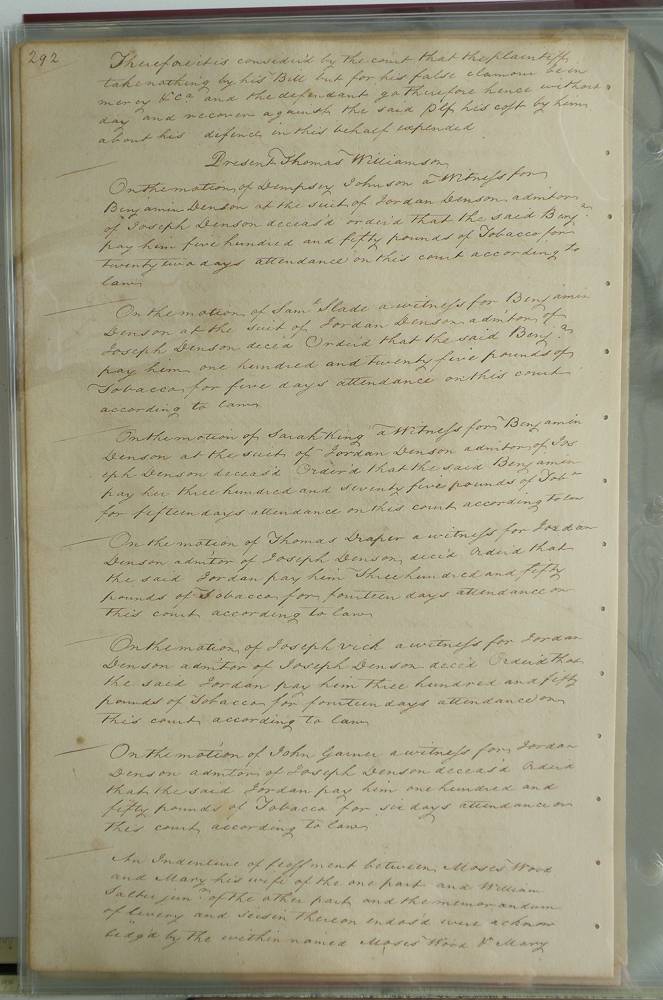 292
Therefore it is consider'd by the court that the plaintiff
take nothing by his Bill but for his false clamour be in
mercy &Ca and the defendant go thereof hence without
day and recover against the said Plf his cost by him
about his defence in this behalf expended
Present Thomas Williamson
On the motion of Dempsey Johnson a Witness for
Benjamin Denson at the suit of Jordan Denson admitor
of Joseph Denson deceas'd order'd that the said Benja
pay him five hundred and fifty pounds of Tobacco for
twenty two days attendance on this court according to
law
On the motion of Saml Slade a witness for Benjamin
Denson at the suit of Jordan Denson admitor of
Joseph Denson dece'd Order'd that the said Benja
pay him one hundred and twenty five pounds of
Tobacco for five days attendance on this court
according to law
On the motion of Sarah King a Witness for Benjamin
Denson at the suit of Jordan Denson admitor of Jos
eph Denson deceas'd Order'd that the said Benjamin
pay her three hundred and seventy five pounds of Tobo
for fifteen days attendance on this court according to law
On the motion of Thomas Draper a witness for Jordan
Denson admitor of Joseph Denson dece'd Order'd that
the said Jordan pay him Three hundred and fifty
pounds of Tobacco for fourteen days attendance on
this court according to law
On the motion of Joseph Vick a witness for Jordan
Denson admitor of Joseph Denson dece'd Order'd that
the said Jordan pay him three hundred and fifty
pounds of Tobacco for fourteen days attendance on
this court according to law
On the motion of John Garner a witness for Jordan
Denson admitor of Joseph Denson deceas'd Order'd
that the said Jordan pay him one hundred and
fifty pounds of Tobacco for six days attendance on
this court according to law
An Indenture of feoffment between Moses Wood
and Mary his wife of the one part and William
Salter junr of the other part and the memorandum
of livery and seisin thereon endos'd were acknow
ledg'd by the within named Moses Wood & Mary